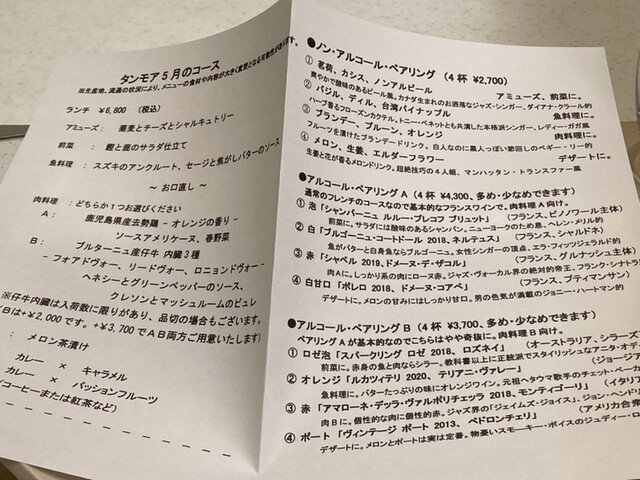 タンモア５月のコース
※生産地、流通の状況により、メニューの食材や内容が大きく変更となる可能性があります。
ランチ ￥6,800 （税込）
アミューズ： 蕎麦とチーズとシャルキュトリー
前菜 ： 鰹と鹿のサラダ仕立て
魚料理 ： スズキのアンクルート、セージと焦がしバターのソース
～ お口直し ～
肉料理 ：どちらか１つお選びください
A： 鹿児島県産去勢鶏 - オレンジの香り -
ソースアメリケーヌ、春野菜
B： ブルターニュ産仔牛 内臓３種
- フォアドヴォー、リードヴォー、ロニョンドヴォー -
ヘネシーとグリーンペッパーのソース、
クレソンとマッシュルームのピュレ
※仔牛内臓は入荷数に限りがあり、品切の場合もございます。
Bは+￥2,000 です。+￥3,700 でAB両方ご用意いたします)
：メロン茶漬け
カレー × キャラメル
カレー × パッションフルーツ
(コーヒーまたは紅茶など)
●ノン・アルコール・ペアリング （４杯 ￥2,700）
① 茗荷、カシス、ノンアルビール アミューズ、前菜に。
爽やかで酸味のあるビール風。カナダ生まれのお洒落なジャズ・シンガー、ダイアナ・クラール的
② バジル、ディル、台湾パイナップル 魚料理に。
ハーブ香るフローズンカクテル。トニー・ベネットとも共演した本格派シンガー、レディー・ガガ風
③ ブランデー、プルーン、オレンジ 肉料理に。
フルーツを漬けたブランデードリンク。白人なのに黒人っぽい節回しのペギー・リー的
④ メロン、生姜、エルダーフラワー デザートに。
生姜と花が香るメロンドリンク。超絶技巧の４人組、マンハッタン・トランスファー風
●アルコール・ペアリングA （４杯 ￥4,300、多め・少なめできます）
通常のフレンチのコースなので基本的なフランスワインで。肉料理A向け。
① 泡「シャンパーニュ ルルー・ブレコフ ブリュット」 （フランス、ピノノワール主体）
前菜に。サラダには酸味のあるシャンパン。ニューヨークのため息、ヘレン・メリル
② 白「ブルゴーニュ・コートドール 2018、ネルテュス」 （フランス、シャルドネ）
魚がバターと白身魚ならブルゴーニュ。女性シンガーの頂点、エラ・フィッツジェラルド的
③ 赤「シャペル 2019、ドメーヌ・デ・ザコル」 （フランス、グルナッシュ主体）
肉Aに。しっかり系の肉にローヌ赤。ジャズ・ヴォーカル界の絶対的帝王、フランク・シナトラ
④ 白甘口「ボレロ 2018、ドメーヌ・コアペ」 （フランス、プティマンサン）
デザートに。メロンの甘みにはしっかり甘口。男の色気が満載のジョニー・ハートマン的
●アルコール・ペアリングB （４杯 ￥3,700、多め・少なめできます）
ペアリングAが基本的なのでこちらはやや奇抜に。肉料理B向け。
① ロゼ泡「スパークリング ロゼ 2018、ロズネイ」 （オーストラリア、シラーズ
前菜に。赤身の魚と肉ならシラー。教科書以上に正統派でスタイリッシュなアニタ・オデイ
② オレンジ「ルカツィテリ 2020、テリアニ・ヴァレー」 （ジョージア
魚料理に。バターたっぷりの味にオレンジワイン。元祖ヘタウマ歌手のチェット・ベーカ
③ 赤「アマローネ・デッラ・ヴァルポリチェッラ 2018、モンティゴーリ」 （イタリ
肉Bに。個性的な肉に個性的赤。ジャズ界の「ジェイムズ・ジョイス」、ジョン・ヘンド
④ ポート「ヴィンテージ ポート 2013、ペドロンチェリ」 （アメリカ合衆
デザートに。メロンとポートは実は定番。物憂いスモーキー・ボイスのジュディー・